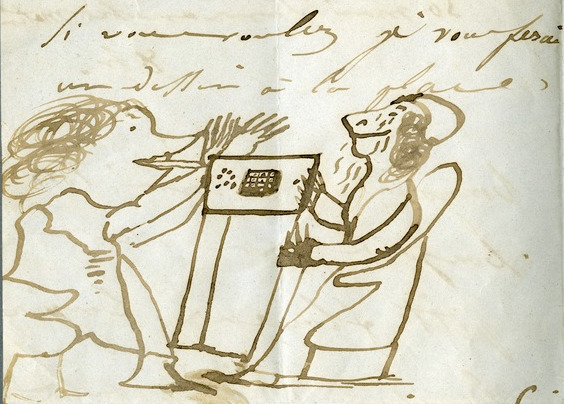 Si vous voulez je vous ferai
un dessin à la place